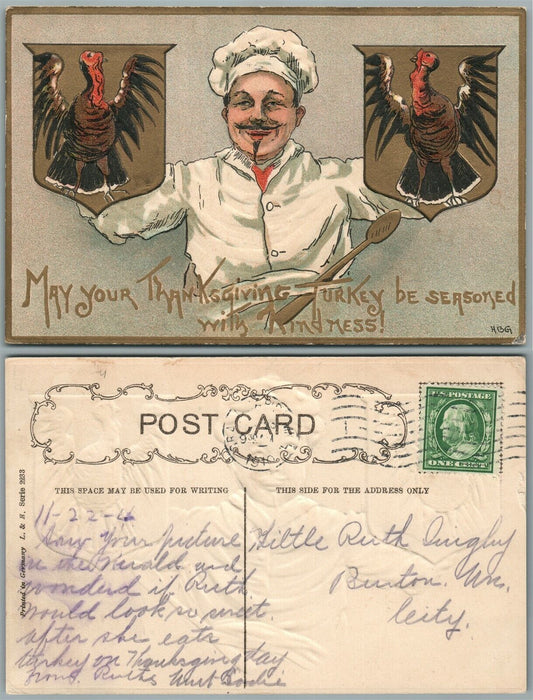 MAY YOUR THANKSGIVING TURKEY BE SEASONED
WITH KINDNESS!
HBG
POST CARD
U.S. POSTAGE
ONE CENT
THIS SPACE MAY BE USED FOR WRITING
THIS SIDE FOR THE ADDRESS ONLY
Printed in Germany L. & E. Serie 2233
11-22-
Saw your picture
in the Herald and
wonderd if Ruth
would look so sweet
after she eats
turkey on Thanksgiving day
from Ruths Aunt
Little Ruth
City.